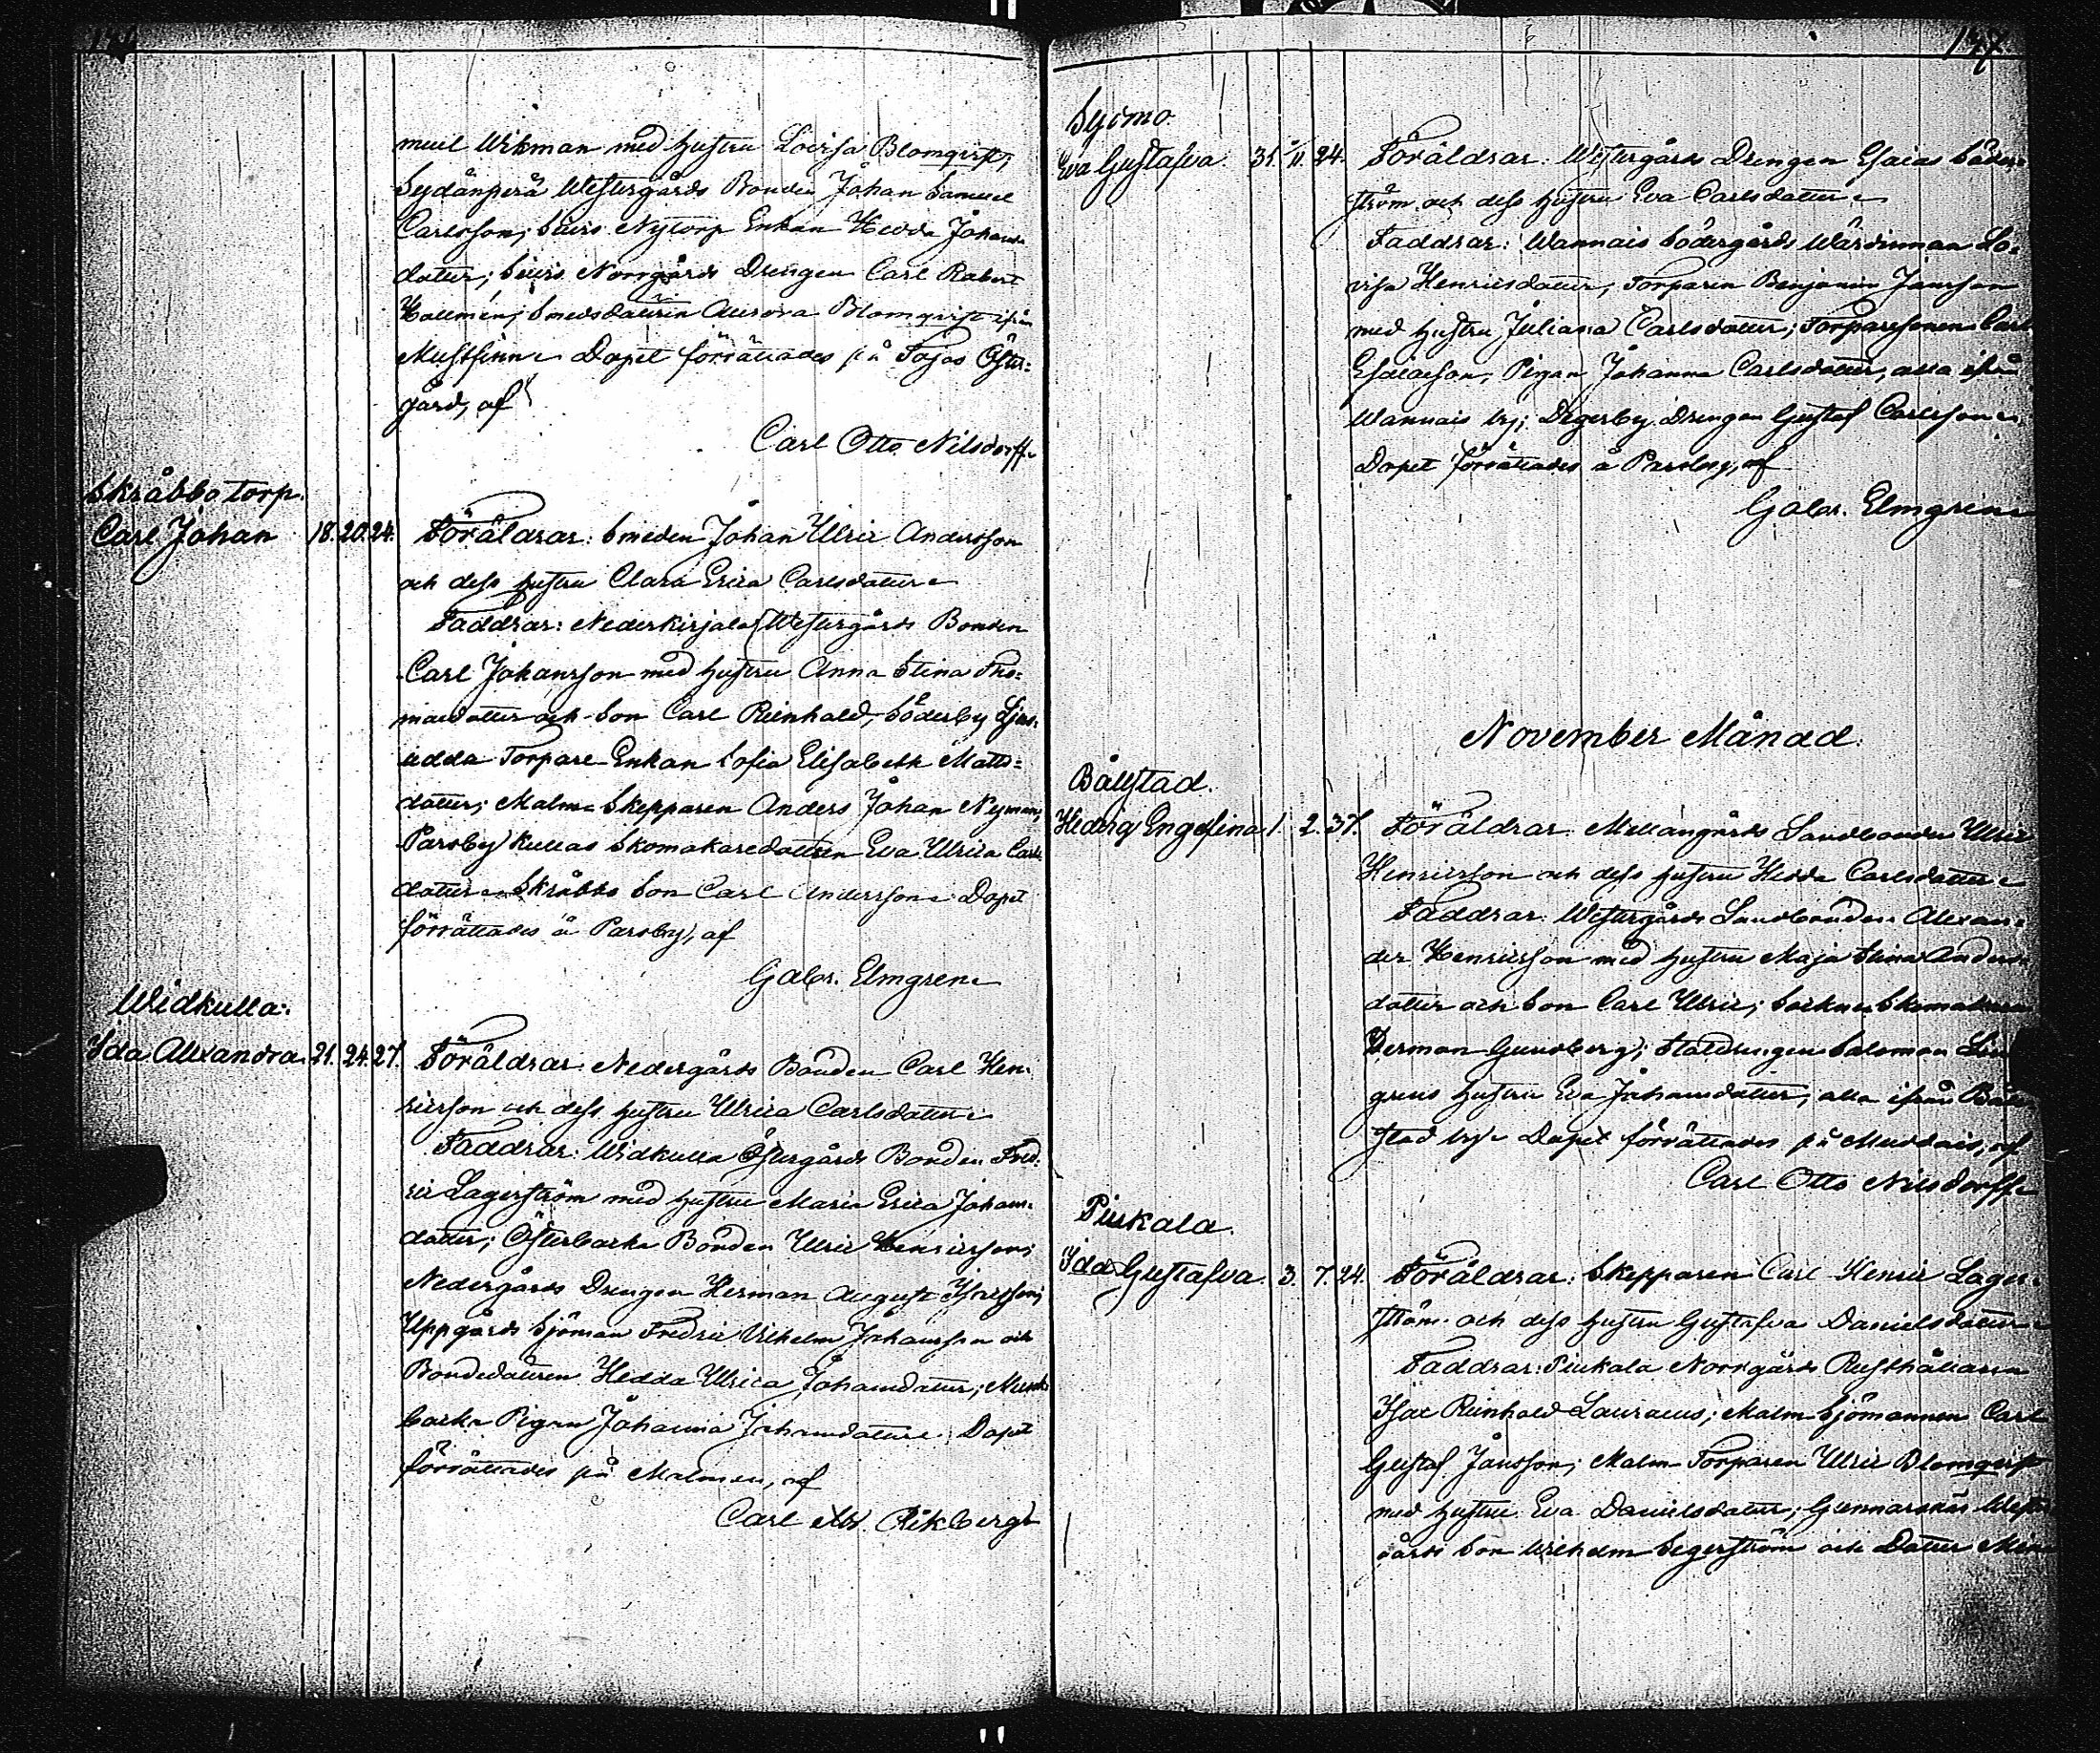 muel Wikman med hustru Lovisa Blomqvist,
Sydänperä Westergårds Bonden Johan Samuel
Carlsson; Sluis Nytorp Enkan Hedda Johans
datter; Norrgårds Drengen Carl Robert
Hallmén; Smedsdattren Aurora Blomqvist ifrån
Mustfinn. Dopet förrättades på Tojas Öster=
gård, af
Carl Otto Nilsdorff.
Skräbbo torp.
Carl Johan 18. 20. 24. Föräldrar: Smeden Johan Ulric Andersson
och dess hustru Clara Erica Carlsdatter.
Faddrar: Nederkirjala Westergårds Bonden
Carl Johansson med hustru Anna Stina Tho=
masdatter och Son Carl Reinhold, Söderby Ljus=
udda Torpare Enkan Sofia Elisabeth Matts=
datter; Malm Skepparen Anders Johan Nyman,
Parsby Kullas Skomakaredattren Eva Ulrica Carls
datter. Skräbbo Son Carl Andersson. Dopet
förrättades å Parsby, af
Gabr. Elmgren.
Widkulla.
Ida Alexandra. 21. 24. 27. Föräldrar: Nedergårds Bonden Carl Hen=
ricsson och dess hustru Ulrica Carlsdatter.
Faddrar: Widkulla Östergårds Bonden Fred=
ric Lagerström med hustru Maria Erica Johans=
datter; Österbacka Bonden Ulric Henricsson;
Nedergårds Drengen Herman August Isacsson;
Uppgårds Sjöman Fredric Wilhelm Johansson och
Bondedattren Hedda Ulrica Johansdatter; Munk
backa Pigan Johanna Johansdatter. Dopet
förrättades på Malmen, af
Carl Rikberg
147
Syömo.
Eva Gustafva. 31. 1/11. 24. Föräldrar: Westergårds Drengen Esaias Söder=
ström och dess hustru Eva Carlsdatter.
Faddrar: Wannais Södergårds Wärdinnan Lo=
visa Henricsdatter, Torparen Benjamin Jansson
med hustru Juliana Carlsdatter; Torparesonen Carl
Esaiasson, Pigan Johanna Carlsdatter, alla ifrån
Wannais by; Degerby Drengen Gustaf Carlsson.
Dopet förrättades å Parsby, af
Gabr. Elmgren.
November Månad.
Bållstad.
Hedvig Engelsina. 1. 2. 37. Föräldrar: Mellangårds Landbonden Ulric
Henricsson och dess hustru Hedda Carlsdatter.
Faddrar: Westergårds Landbonden Alexan=
der Henricsson med hustru Maja Stina Anders
datter och Son Carl Ulric; Sockne Skomakaren
Herman Gundberg; Stalldrengen Salomon
grens hustru Eva Johansdatter, alla ifrån Båll
stad by. Dopet förrättades på Muddais, af
Carl Otto Nilsdorff.
Piukala.
Ida Gustafva. 3. 7. 24. Föräldrar: Skepparen Carl Henric Lager=
ström och dess hustru Gustafva Danielsdatter.
Faddrar: Piukala Norrgårds Rusthållaren
Isac Reinhold Lauraeus; Malm Sjömannen Carl
Gustaf Jansson; Malm Torparen Ulric Blomqvist
med hustru Eva Danielsdatter; Gunnarsnäs West
gårds Son Wilhelm Segerström och Datter